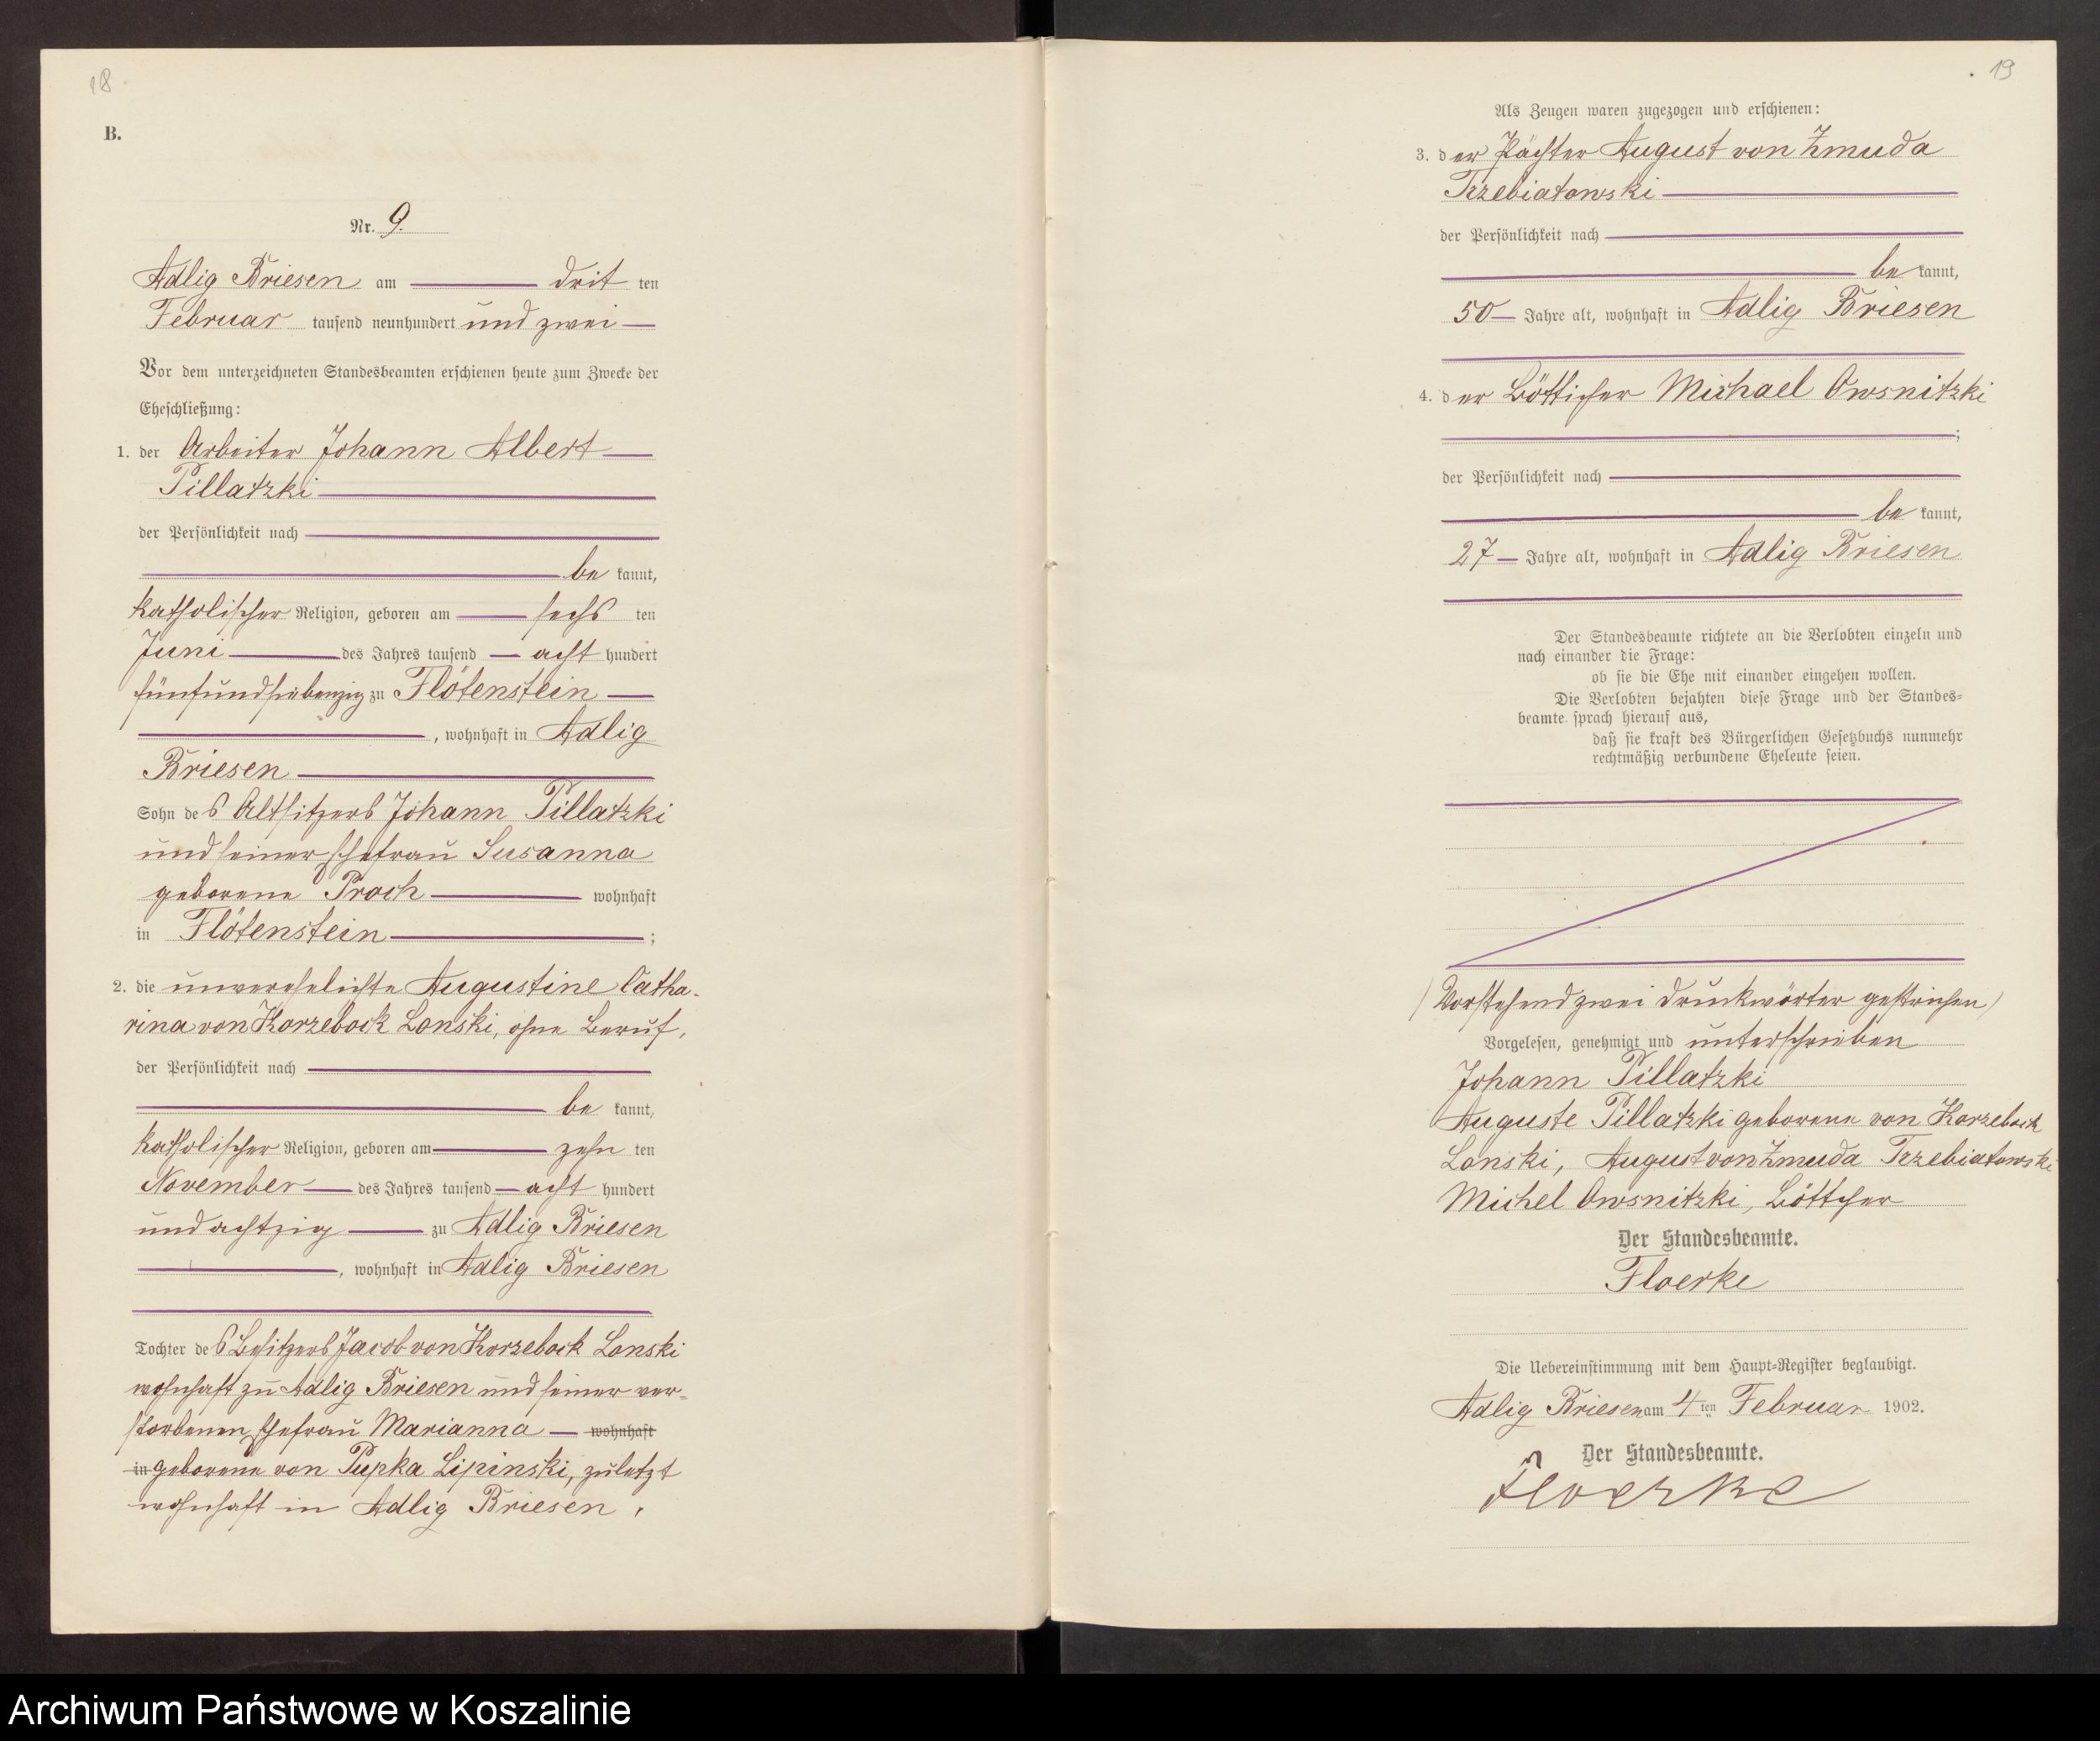 18
B.
Nr. 9.
Adlig Briesen am drit ten
Februar tausend neunhundert und zwei
Vor dem unterzeichneten Standesbeamten erschienen heute zum Zwecke der
Eheschließung:
1. der Arbeiter Johann Albert
Pillatzki
der Persönlichkeit nach
be kannt,
katholischer Religion, geboren am sechs ten
Juni des Jahres tausend acht hundert
fünfundsiebenzig zu Flötenstein
, wohnhaft in Adlig
Briesen
Sohn des Altsitzers Johann Pillatzki
und seiner Ehefrau Susanna
geborene Proch wohnhaft
in Flötenstein ;
2. die unverehelichte Augustine Catha-
rina von Korzebock Lonski, ohne Beruf,
der Persönlichkeit nach
be kannt,
katholischer Religion, geboren am zehn ten
November des Jahres tausend acht hundert
und achtzig zu Adlig Briesen
, wohnhaft in Adlig Briesen
Tochter des Besitzers Jacob von Korzebock Lonski
wohnhaft zu Adlig Briesen und seiner ver-
storbenen Ehefrau Marianna wohnhaft
in geborene von Pupka Lipinski, zuletzt
wohnhaft in Adlig Briesen.
19
Als Zeugen waren zugezogen und erschienen:
3. der Pächter August von Zmuda
Trzebiatowski
der Persönlichkeit nach
be kannt,
50 Jahre alt, wohnhaft in Adlig Briesen
4. der Bötticher Michael Owsnitzki
;
der Persönlichkeit nach
be kannt,
27 Jahre alt, wohnhaft in Adlig Briesen
Der Standesbeamte richtete an die Verlobten einzeln und
nach einander die Frage:
ob sie die Ehe mit einander eingehen wollen.
Die Verlobten bejahten diese Frage und der Standes-
beamte sprach hierauf aus,
daß sie kraft des Bürgerlichen Gesetzbuchs nunmehr
rechtmäßig verbundene Eheleute seien.
(Vorstehend zwei Druckwörter gestrichen)
Vorgelesen, genehmigt und unterschrieben
Johann Pillatzki
Auguste Pillatzki geborene von Korzebock
Lonski, August von Zmuda Trzebiatowski
Michel Owsnitzki, Böttcher
Der Standesbeamte.
Floerke
Die Uebereinstimmung mit dem Haupt-Register beglaubigt.
Adlig Briesen am 4ten Februar 1902.
Der Standesbeamte.
Floerke
Archiwum Państwowe w Koszalinie